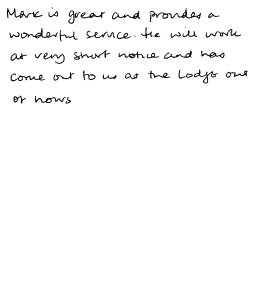 Mark is great and provides a
wonderful service. He will work
at very short notice and has
come out to us at the Lodge out
of hours